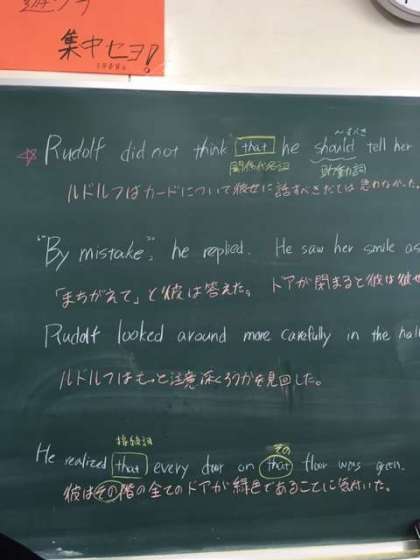 集中セヨ!
〜すべき
Rudolf did not think that he should tell her
関係代名詞 助動詞
ルドルフはカードについて彼女に話すべきだとは思わなかった。
"By mistake", he replied. He saw her smile as
「まちがえて」と彼は答えた。ドアが閉まると彼は彼女
Rudolf looked around more carefully in the hall
ルドルフはもっと注意深くろうかを見回した。
接続詞 その
He realized that every door on that floor was green.
彼はその階の全てのドアが緑色であることに気付いた。